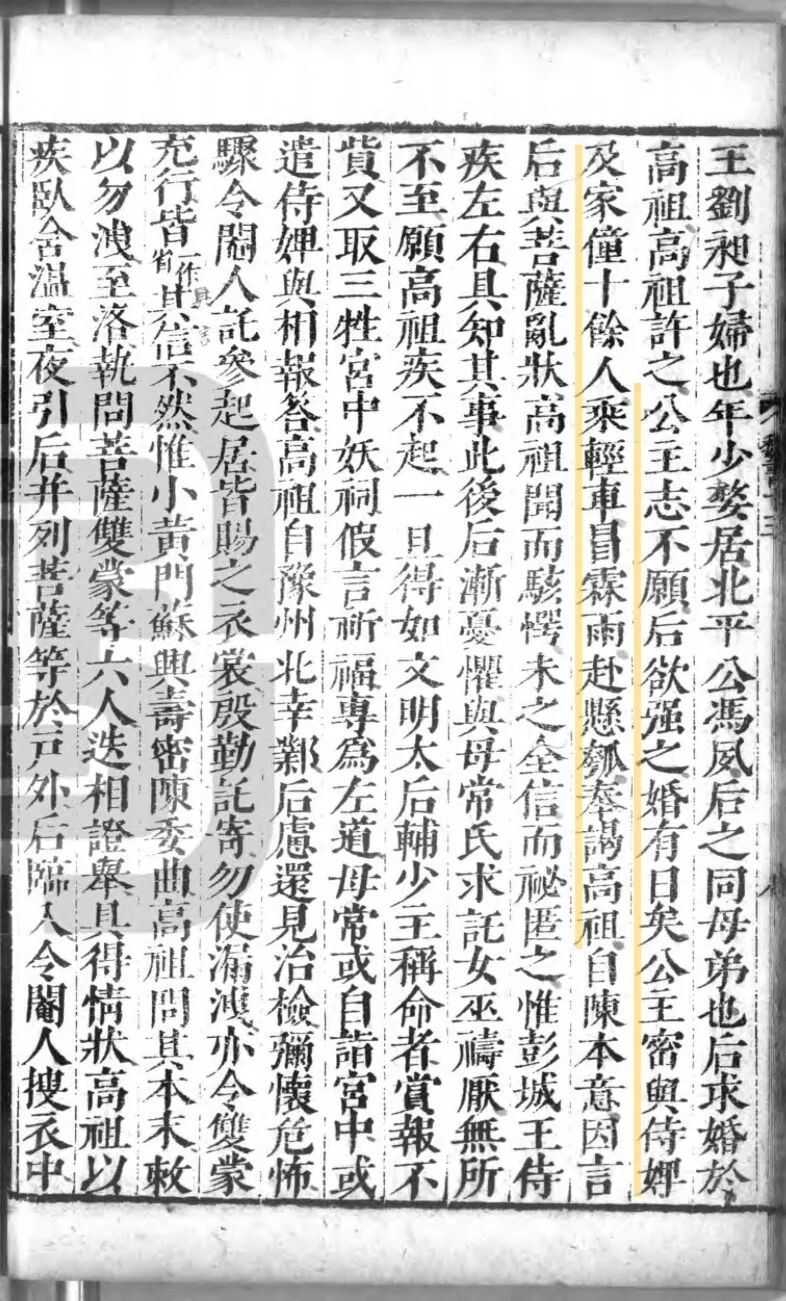 王劉昶子婦也年少嫠居北平公馮夙后之同母弟也后求婚於
高祖高祖許之公主志不願后欲强之婚有日矣公主密與侍婢
及家僮十餘人乘輕車冒霖雨赴懸瓠奉謁高祖自陳本意因言
后與菩薩亂狀高祖聞而駭愕未之全信而祕匿之惟彭城王侍
疾左右具知其事此後后漸憂懼與母常氏求託女巫禱厭無所
不至願高祖疾不起一旦得如文明太后輔少主稱命者賞報不
貲又取三牲宮中妖祠假言祈福專為左道母常或自詣宮中或
遣侍婢與相報答高祖自豫州北幸鄴后慮還見治檢彌懷危怖
驟令閹人託參起居皆賜之衣裳殷勤託寄勿使漏洩亦令雙蒙
充行皆一作省其信不然惟小黃門蘇興壽密陳委曲高祖問其本末敕
以勿洩至洛執問菩薩雙蒙等六人迭相證舉具得情狀高祖以
疾臥含溫室夜引后并列菩薩等於戶外后臨入令閹人搜衣中